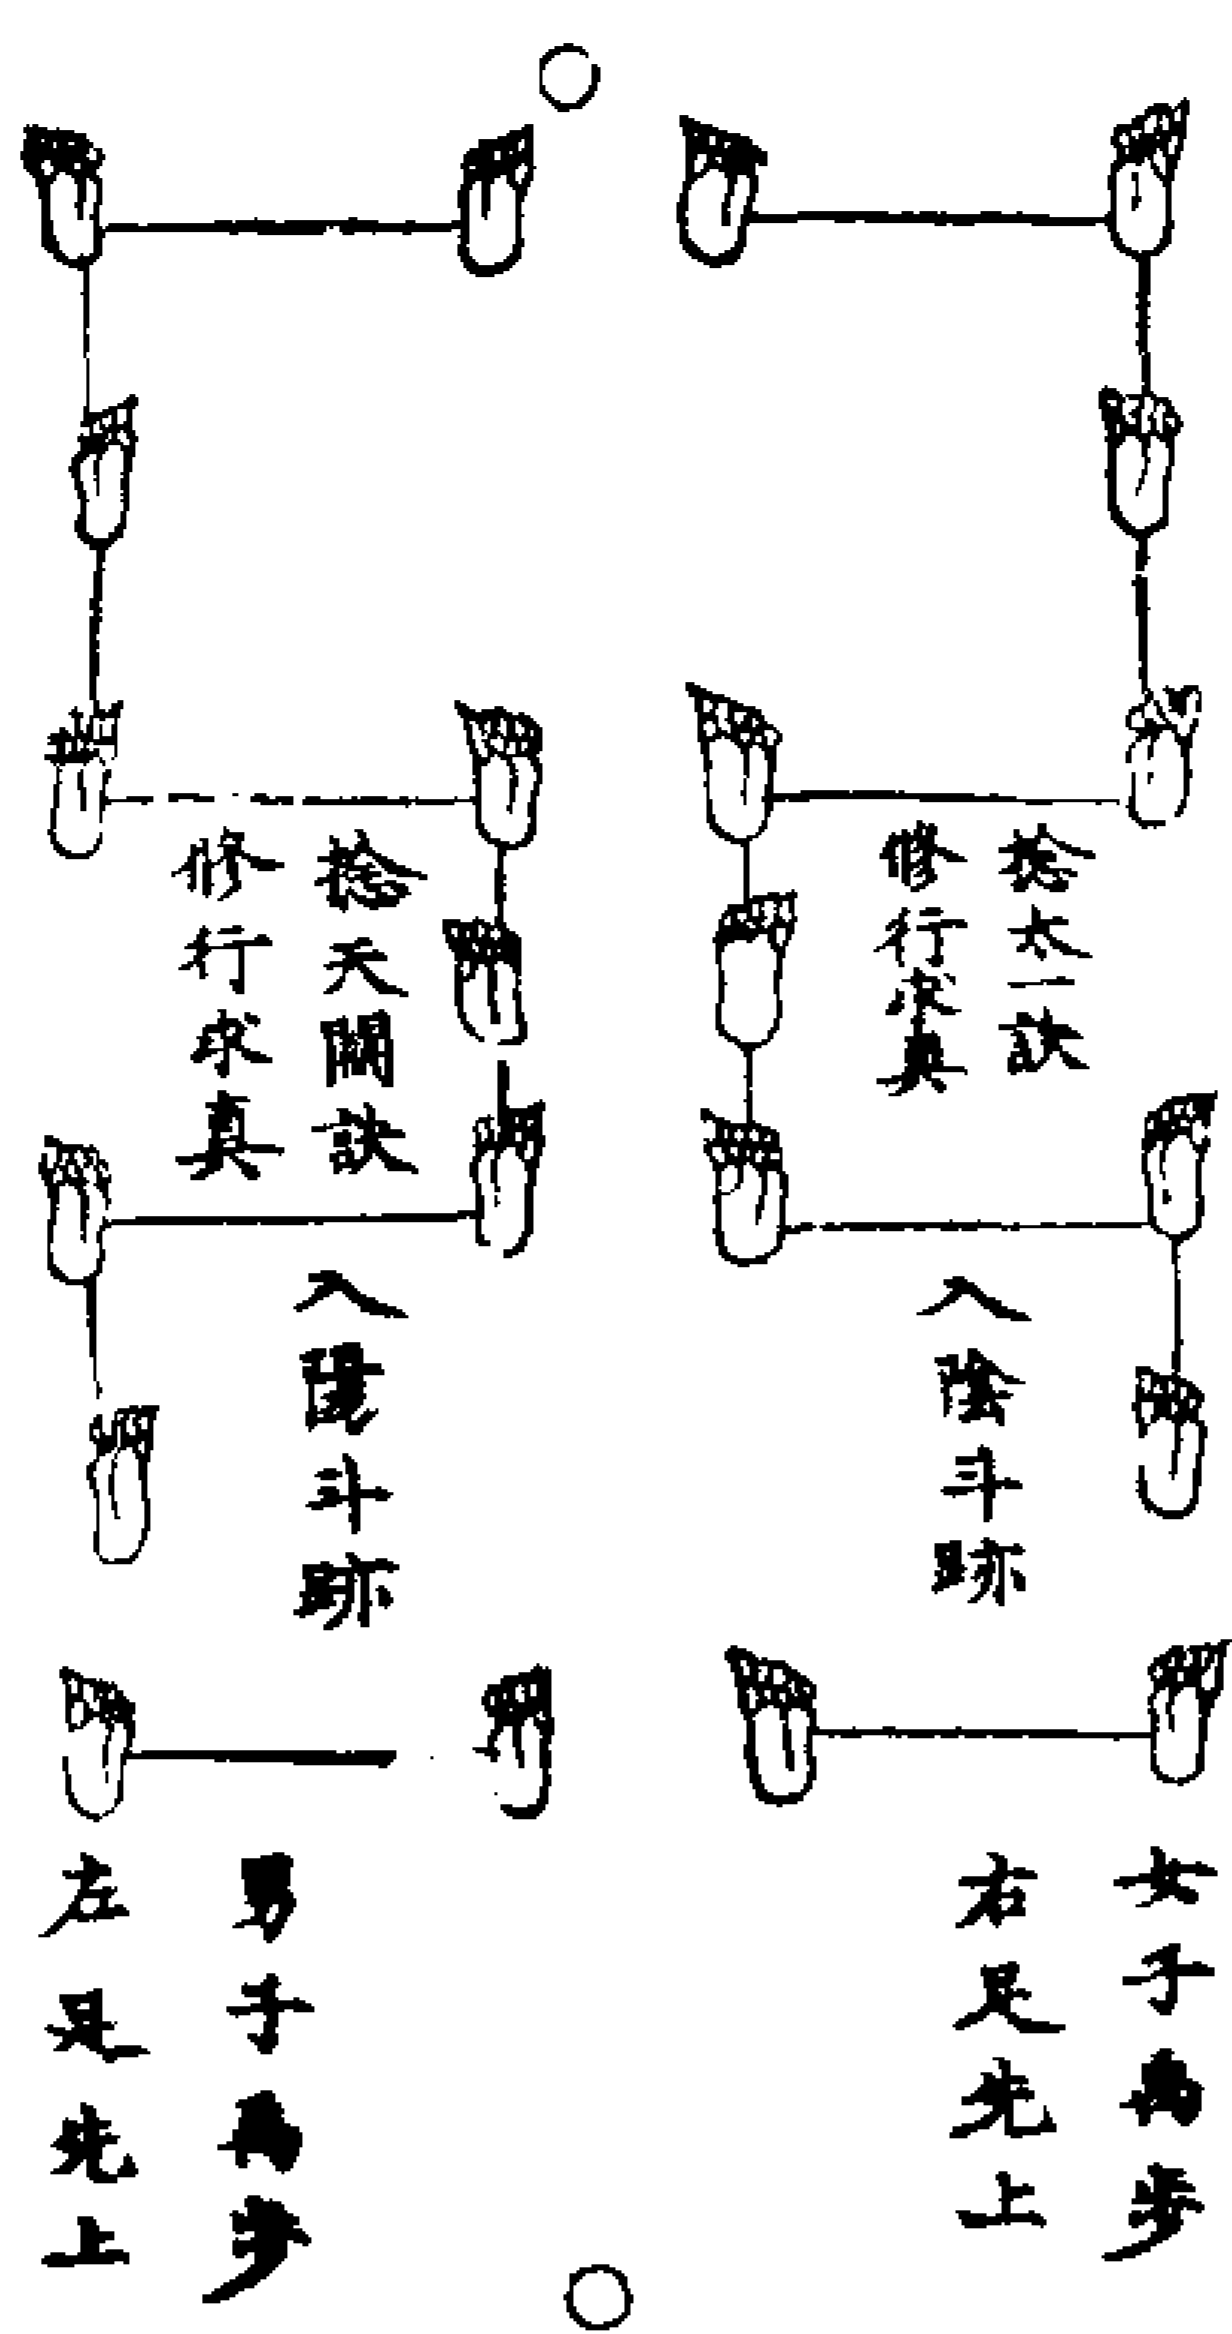 捻太一訣
修行求真
入陰斗跡
女子禹步
右足先上
捻天關訣
修行求真
入陽斗跡
男子禹步
左足先上